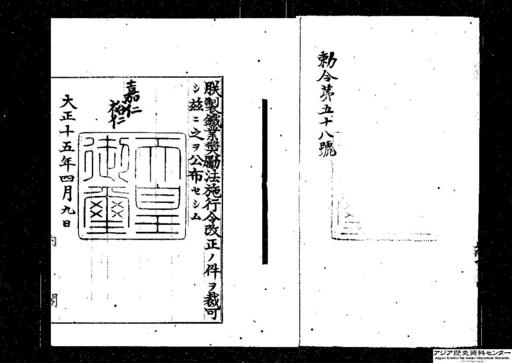 勅令第五十八號
朕製鐵業奬勵法施行令改正ノ件ヲ裁可
シ茲ニ之ヲ公布セシム
嘉仁
裕仁
天皇
御璽
大正十五年四月九日
内閣
アジア歴史資料センター
Japan Center for Asian Historical Records